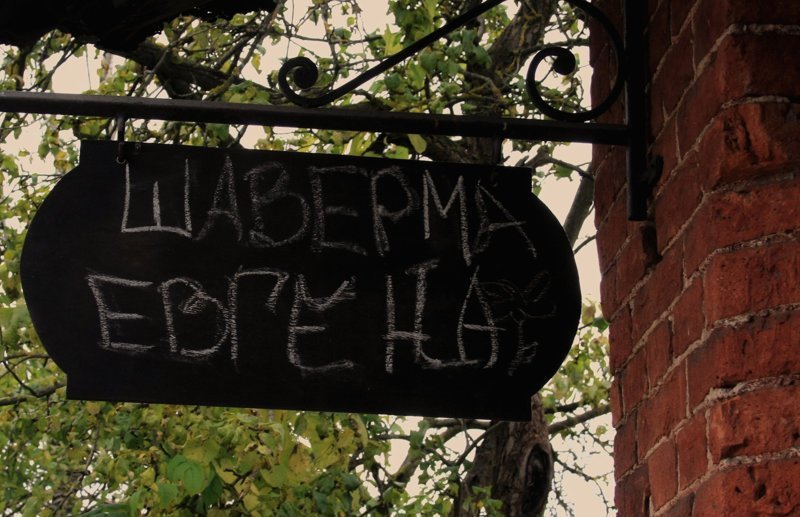 ШАВЕРМА
ЕВГЕНА